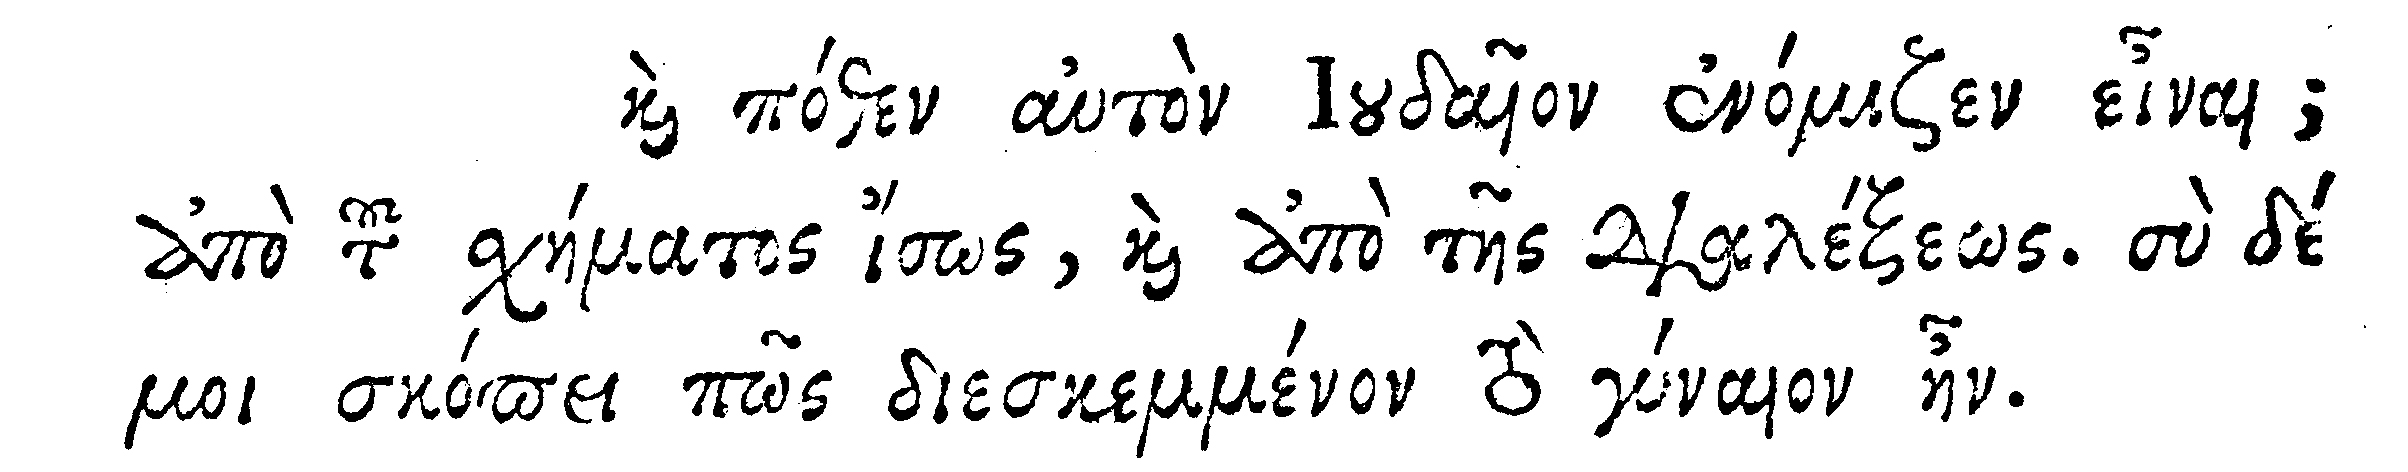 καὶ πόθεν αὐτὸν Ἰουδαῖον ἐνόμιζεν εἶναι;
ἀπὸ τοῦ σχήματος ἴσως, καὶ ἀπὸ τῆς διαλέξεως. σὺ δέ
μοι σκόπει πῶς διεσκεμμένον τὸ γύναιον ἦν.